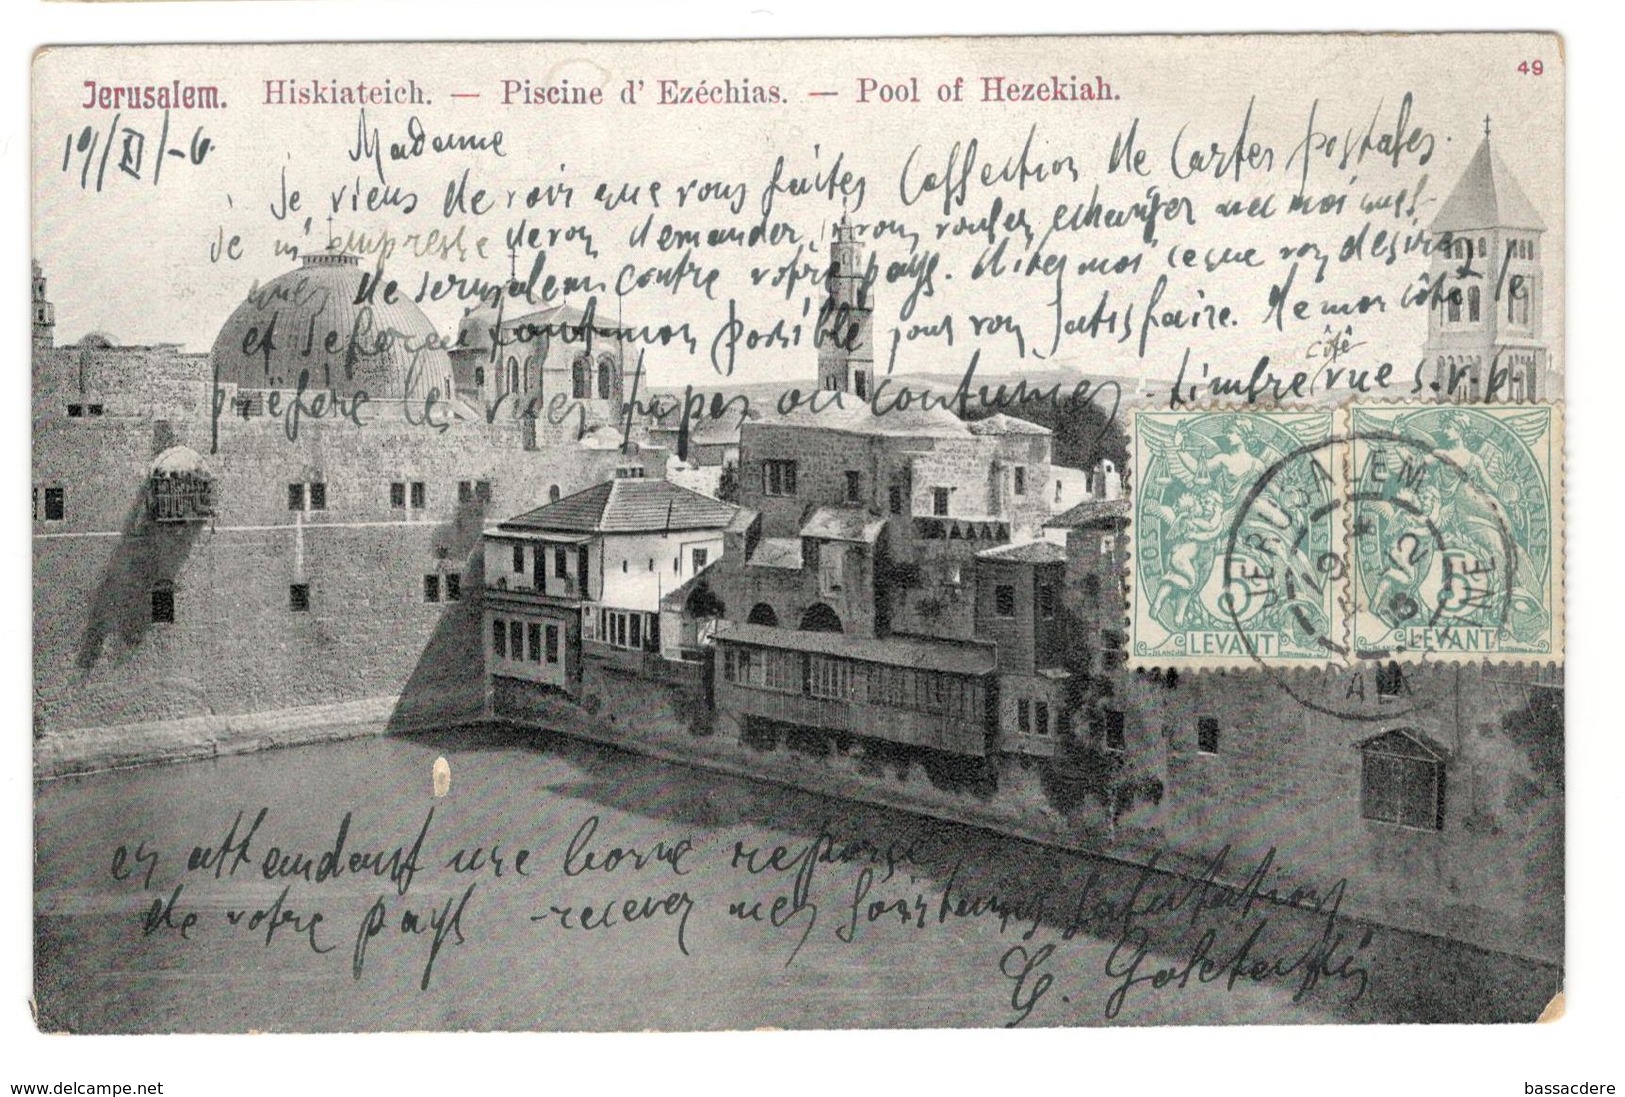 Jerusalem. Hiskiateich. — Piscine d' Ezéchias. — Pool of Hezekiah.
49
Madame
Je viens de voir que vous faites Collection de Cartes postales.
Je m'empresse de vous demander, si vous voulez echanger avec moi
de Jerusalem contre votre pays. dites moi ce que vous desirez
et je ferai tout mon possible pour vous satisfaire. de mon côté je
préfère les vues types ou coutumes. timbre côté vue s.v.p.
JERUSALEM
19
12
LEVANT
5
LEVANT
en attendant une bonne reponse
de votre pays recevez mes salutations
www.delcampe.net
bassacdere